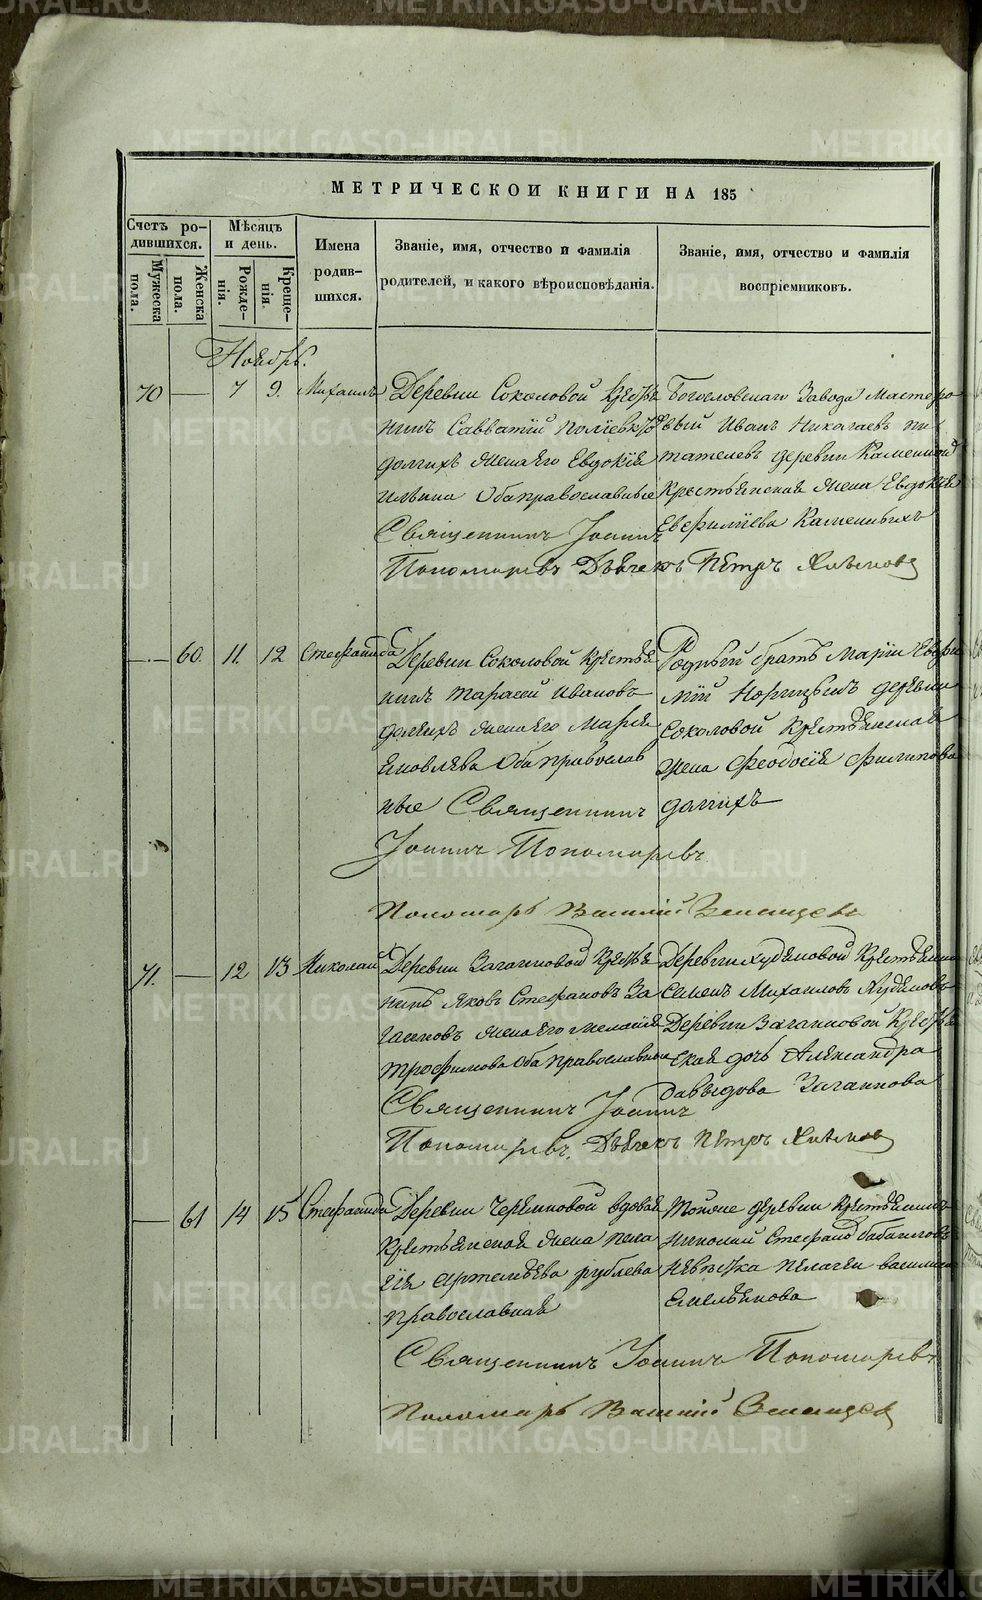 METRIKI.GASO-URAL.RU
МЕТРИЧЕСКОЙ КНИГИ НА 185
Счетъ ро-
дившихся.
Мужеска
пола.
Женска
пола.
Мѣсяцъ
и день.
Рожде-
нія.
Креще-
нія.
Имена
родив-
шихся.
Званіе, имя, отчество и фамилія
родителей, и какого вѣроисповѣданія.
Званіе, имя, отчество и фамилія
воспріемниковъ.
Ноябрь.
70 — 7 9. Михаилъ
Деревни Соколовой Кресть
нинъ Савватій
Долгихъ жена его Евдокія
Ильина Оба православные
Священникъ Іоаннъ
Пономаревъ Дьячекъ Петръ Хлыновъ
Богословскаго Завода Мастеро
вый Иванъ Николаевъ пи
тателевъ деревни Каменной
Крестьянская жена Евдокія
Евфиміева Каменныхъ
— 60. 11. 12 Стефанида
Деревни Соколовой Крестья
нинъ Тарасій Ивановъ
Долгихъ жена его Марія
Яковлева Оба православ
ные Священникъ
Іоаннъ Пономаревъ
Пономарь Василій
Родный братъ Маріи
деревни
Соколовой Крестьянская
жена Феодосія Филипова
Долгихъ
71. — 12 13 Николай
Деревни Загайновой Кресть
нинъ Яковъ Стефановъ За
гайновъ жена его Меланія
Трофимова Оба православные
Священникъ Іоаннъ
Пономаревъ. Дьячекъ Петръ Хлыновъ
Деревни Худяковой Крестьянинъ
Семенъ Михаиловъ Худяковъ
Деревни Загайновой Кресть
ская дочь Александра
Давыдова Загайнова
— 61 14 15 Стефанида
Деревни вдовая
Крестьянская жена Пела
гія Артемьева Рублева
православная
Тойже деревни Крестьянинъ
Николай Стефановъ
Василиса
Емельянова
Священникъ Іоаннъ Пономаревъ
Пономарь Василій